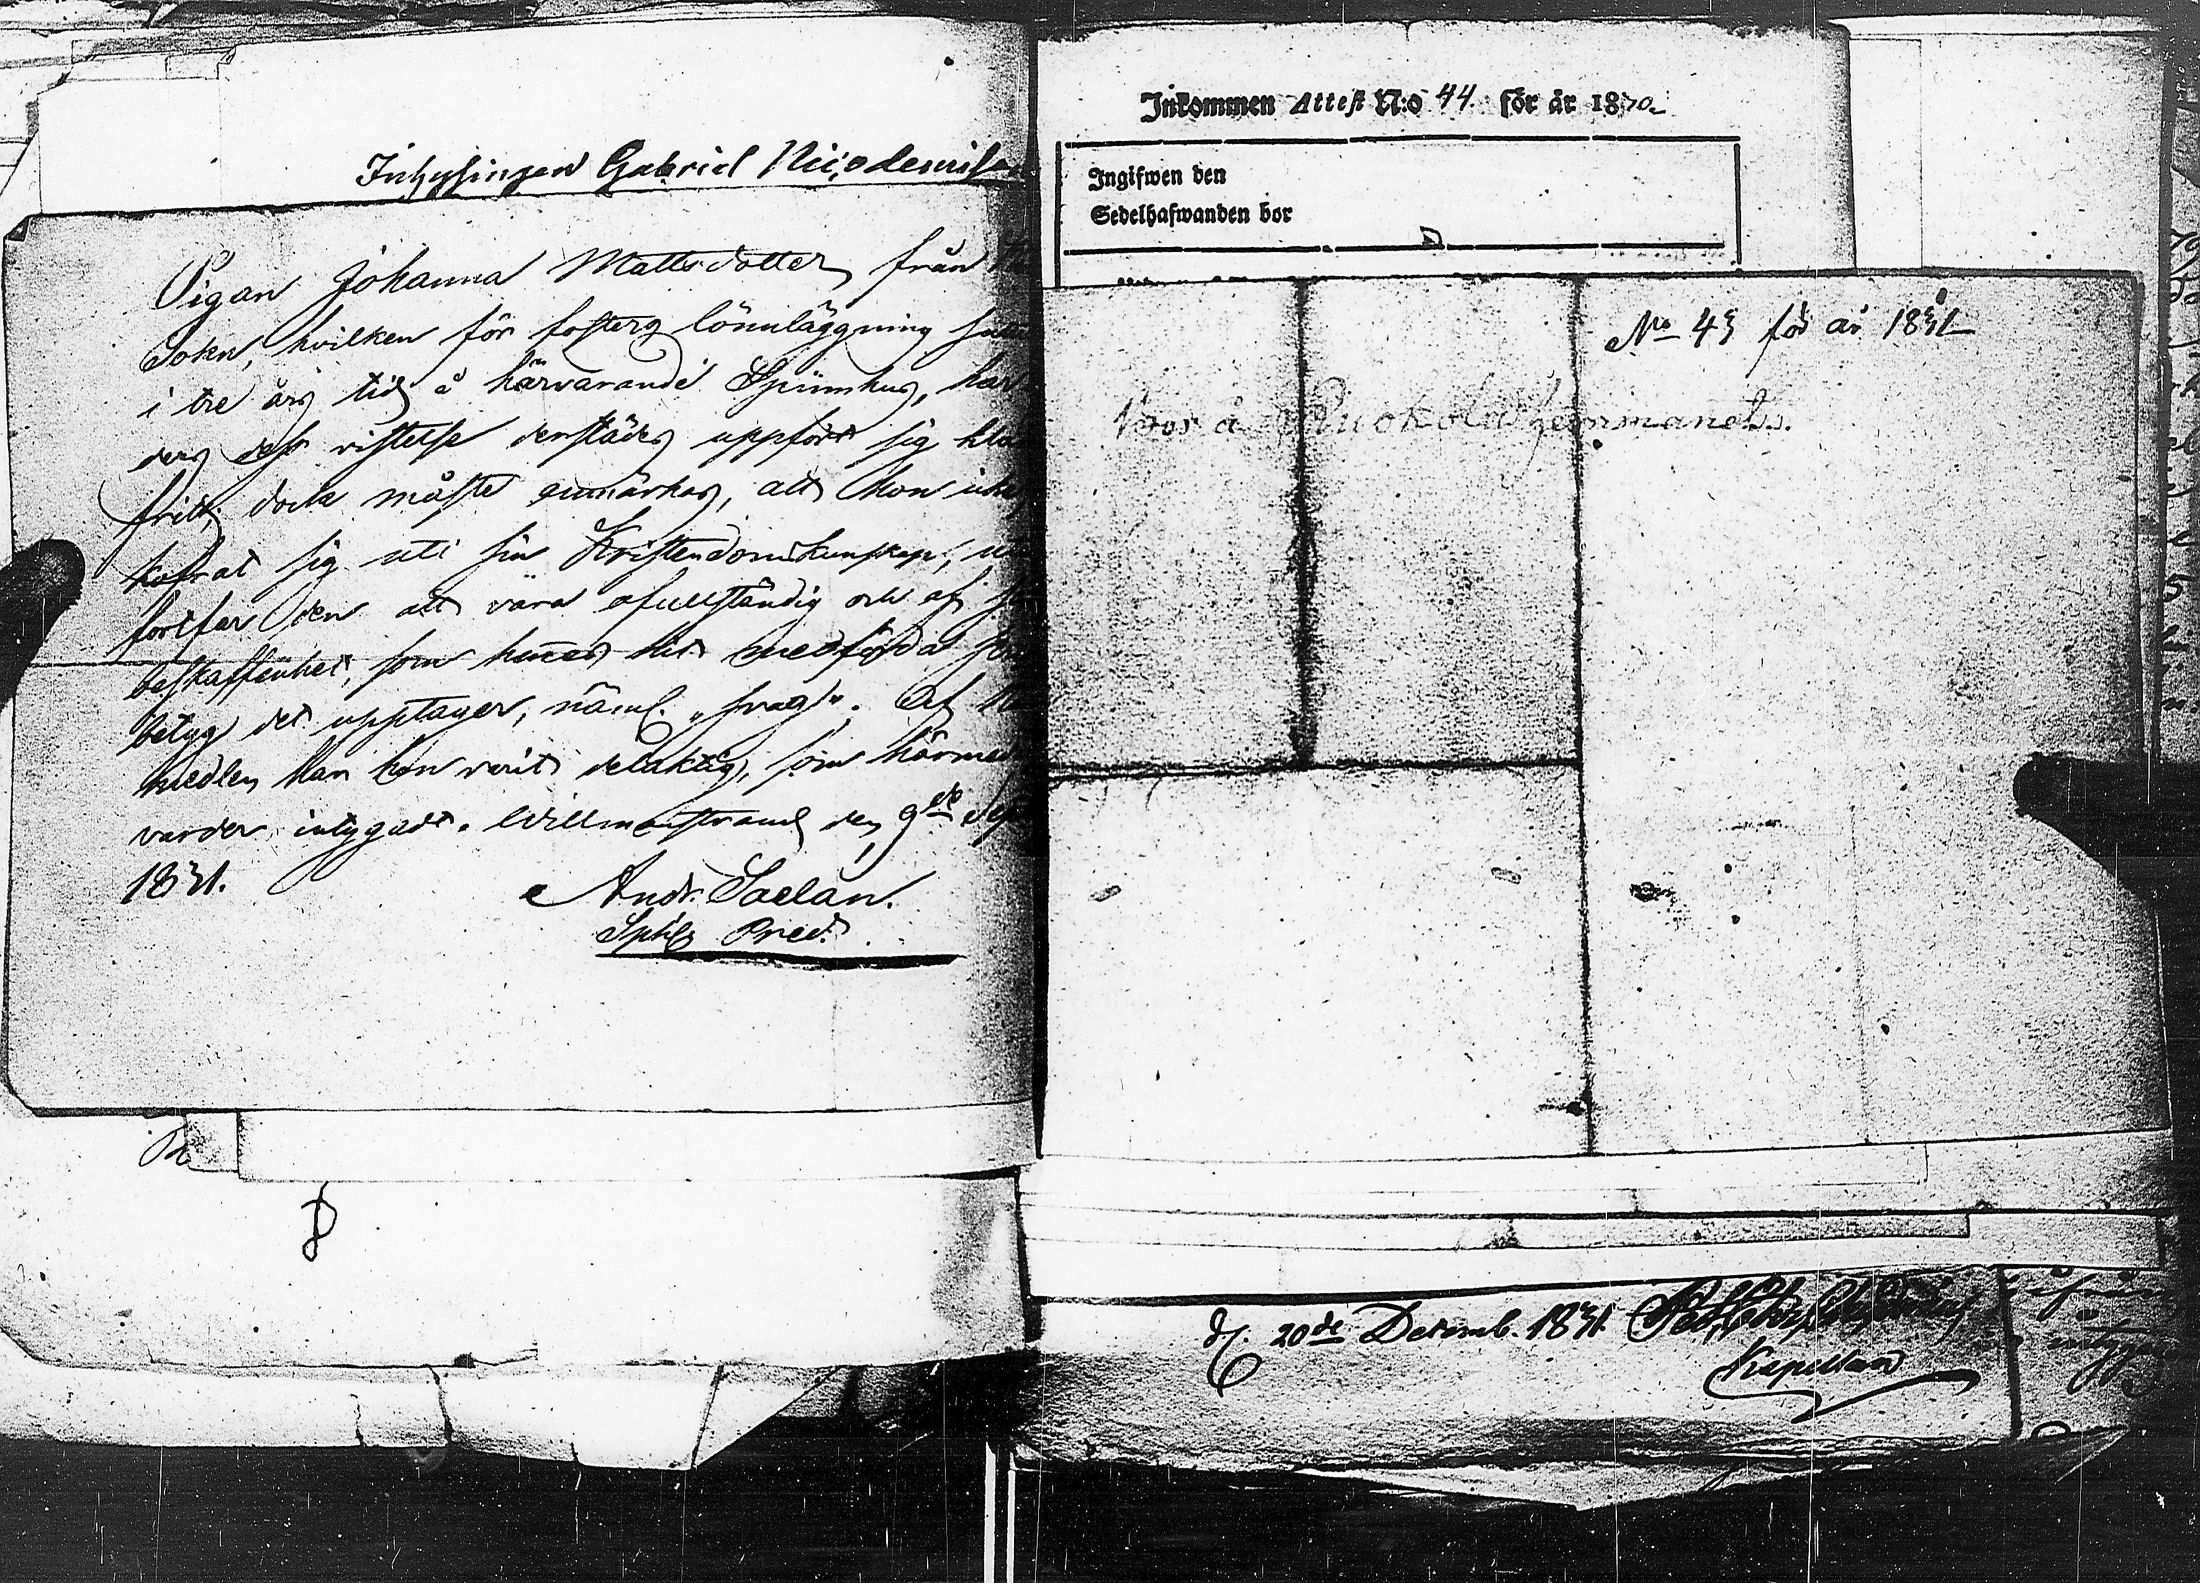 Inhysingen Gabriel Nicodemuss
Pigan Johanna Mattsdotter från
Sokn, hvilken för fosters lönnläggning sutt
i tre års tid å härvarande Spinnhus, har
ders dess vistelse derstädes uppfört sig kla
fritt; dock måste anmärkas, att hon icke
kofrat sig uti sin Kristendomskunskap, u
fortfar den att vara ofullständig och af s
beskaffenhet, som hennes hit medförda
betyg det upptager, näml. "svag". Af
medlen har hon varit delaktig, som härmed
varder intygadt. Willmanstrand den 9de Sept
1871.
Andr. Saelan.
Sphs Pred.
Inkommen Attest N:o 44. för år 1870
Ingifwen den
Sedelhafwanden bor
No 43 för år 1871
Bor å Ruokola hemmanet.
d. 20de Decemb. 1871.
Kapellan
intygar